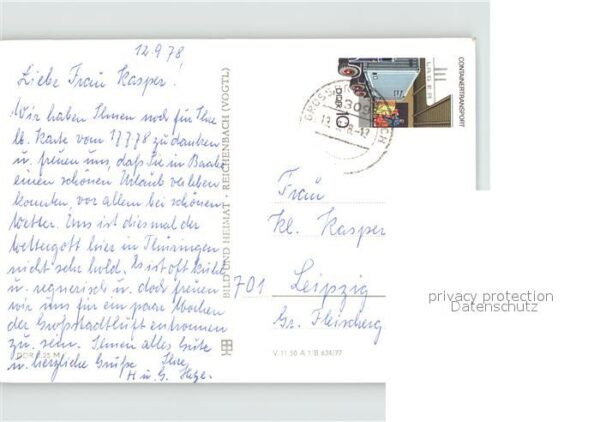 12.9.78
Liebe Frau Kasper!
Wir haben Ihnen noch für Ihre
lb. Karte vom 17.7.78 zu danken
u. freuen uns, daß Sie in Baabe
einen schönen Urlaub verleben
konnten, vor allem bei schönem
Wetter. Uns ist diesmal der
Wettergott hier in Thüringen
nicht sehr hold. Es ist oft kühl
u. regnerisch u. doch freuen
wir uns für ein paar Wochen
der Großstadtluft entronnen
zu sein. Ihnen alles Gute
u. herzliche Grüße Ihre
H u. G.
DDR 0,25 M
BILD UND HEIMAT · REICHENBACH (VOGTL)
V 11 50 A 1/B 634/77
CONTAINERTRANSPORT
LAGER
DDR 10
Frau
Kl. Kasper
701 Leipzig
Gr. Fleischerg
privacy protection
Datenschutz